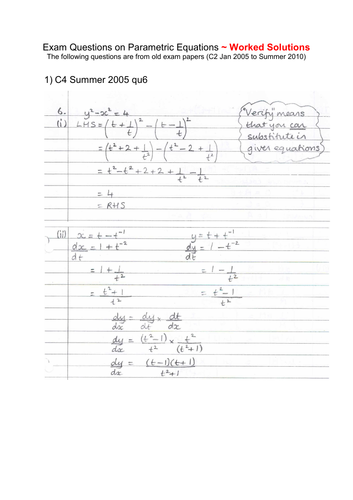 Exam Questions on Parametric Equations ~ Worked Solutions
The following questions are from old exam papers (C2 Jan 2005 to Summer 2010)
1) C4 Summer 2005 qu6
6. y² - x² = 4
(i) LHS = (t + 1/t)² - (t - 1/t)²
= (t² + 2 + 1/t²) - (t² - 2 + 1/t²)
= t² - t² + 2 + 2 + 1/t² - 1/t²
= 4
= RHS
"Verify" means
that you can
substitute in
given equations
(ii) x = t - t⁻¹ y = t + t⁻¹
dx/dt = 1 + t⁻² dy/dt = 1 - t⁻²
= 1 + 1/t² = 1 - 1/t²
= t² + 1/t² = t² - 1/t²
dy/dx = dy/dt × dt/dx
dy/dx = (t² - 1)/t² × t²/(t² + 1)
dy/dx = (t - 1)(t + 1)/t² + 1